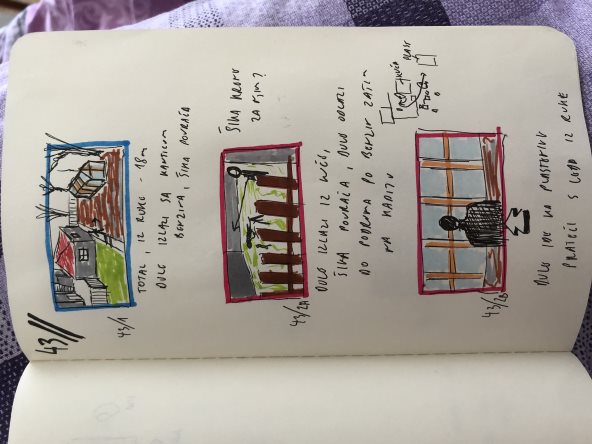 43//
43/1
TOTAL, IZ RUKE - 18m
DULE IZLAZI SA KANTICOM
BENZINA, ŠIKA POVRAĆA
43/2A
ŠIKA KRENU
ZA NJIM?
DULE IZLAZI IZ KUĆE,
ŠIKA POVRAĆA, DULE ODLAZI
DO PODRUMA PO BENZIN ZATIM
KUĆA
PLAST
43/2B
DULE IDE KA PLASTENIKU
PRATEĆI S LEĐA IZ RUKE